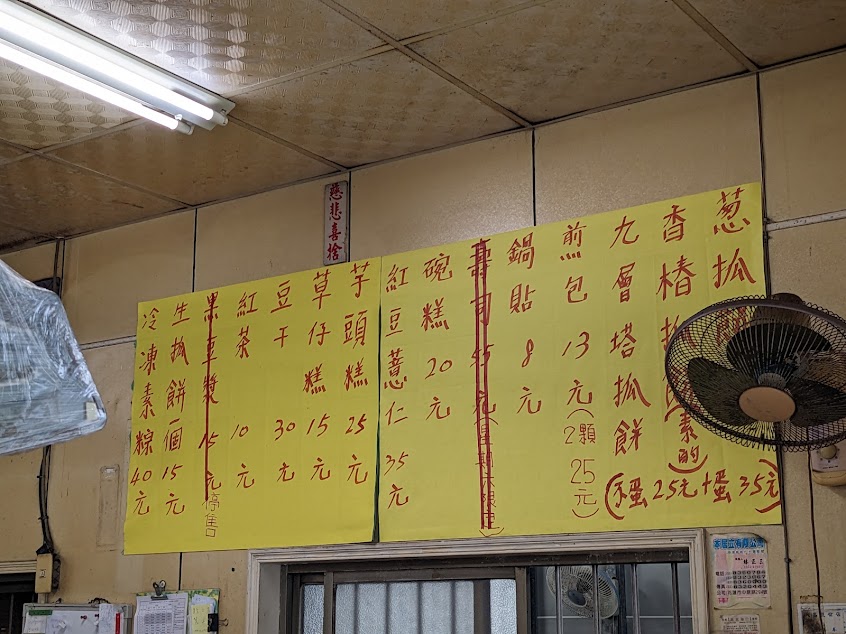 慈悲喜捨
葱抓餅
香椿抓餅(素的)
九層塔抓餅
(不蛋25元+蛋35元)
煎包13元(2顆25元)
鍋貼8元
壽司
碗糕20元
紅豆薏仁35元
芋頭糕25元
草仔糕15元
豆干30元
紅茶10元
米漿15元停售
生抓餅一個15元
冷凍素粽40元